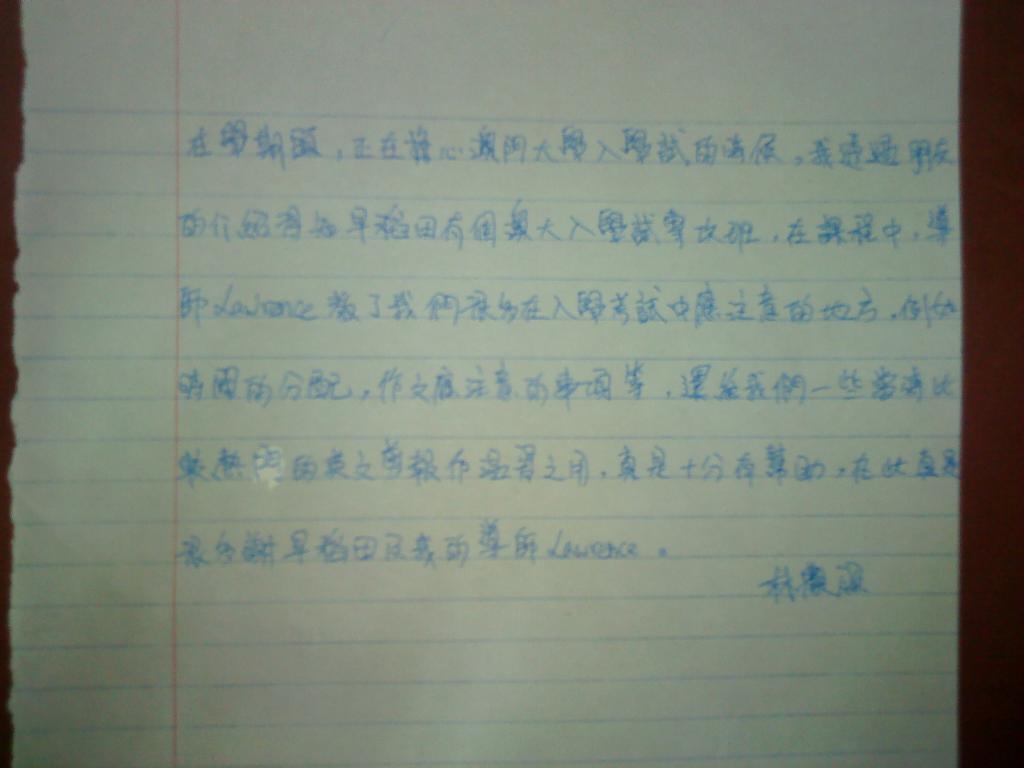 在學期頭,正在擔心澳門大學入學試的時候,我透過朋友
的介紹得知早稻田有個澳大入學試專攻班,在課程中,導
師Lawrence教了我們很多在入學考試中應注意的地方,例如
時間的分配,作文應注意的事項等,還給我們一些當時比
較熱門的英文剪報作溫習之用,真是十分有幫助,在此真是
很多謝早稻田及我的導師Lawrence。